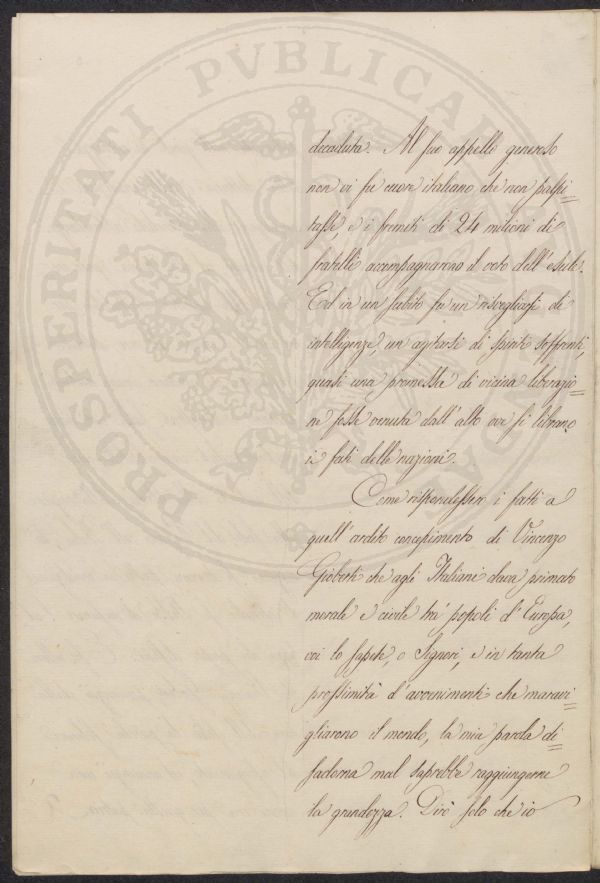 PROSPERITATI PVBLICAE
decaduta. Al suo appello generoso
non vi fu cuore italiano che non palpi=
tasse, e i fremiti di 24 milioni di
fratelli accompagnarono il voto dell'esule.
Ed in un subito fu un risvegliarsi di
intelligenze, un agitarsi di spiriti sofferenti,
quasi una promessa di vicina liberazio=
ne fosse venuta dall'alto ove si librano
i fati delle nazioni.
Come rispondessero i fatti a
quell'ardito concepimento di Vincenzo
Gioberti che agli Italiani dava primato
morale e civile tra' popoli d'Europa,
voi lo sapete, o Signori, e in tanta
prossimità d'avvenimenti che maravi=
gliarono il mondo, la mia parola di=
sadorna mal saprebbe raggiungerne
la grandezza. Dirò solo che io